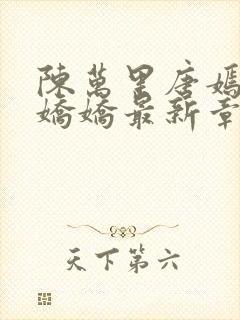 陳萬里唐嫣
嬌嬌最新章
天下第六